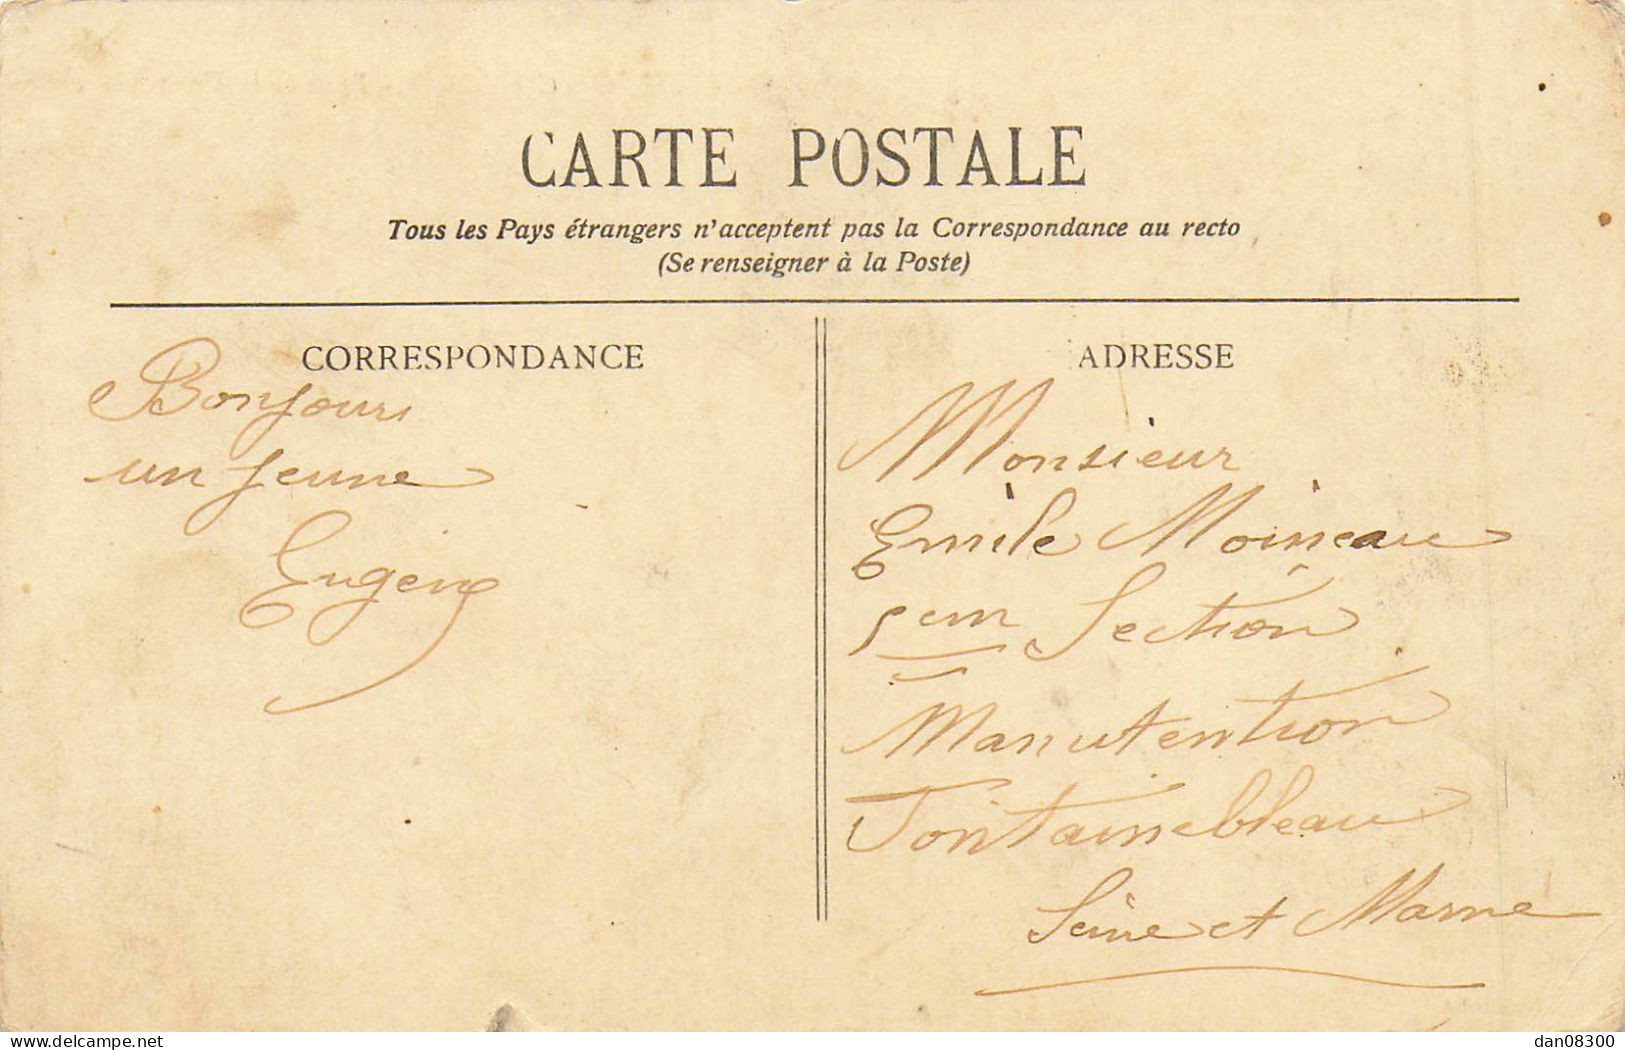 CARTE POSTALE
Tous les Pays étrangers n'acceptent pas la Correspondance au recto
(Se renseigner à la Poste)
CORRESPONDANCE
Bonjour
un jeune
Eugène
ADRESSE
Monsieur
Emile Moineau
5em Section
Manutention
Fontainebleau
Seine et Marne
delcampe.net
dan08300